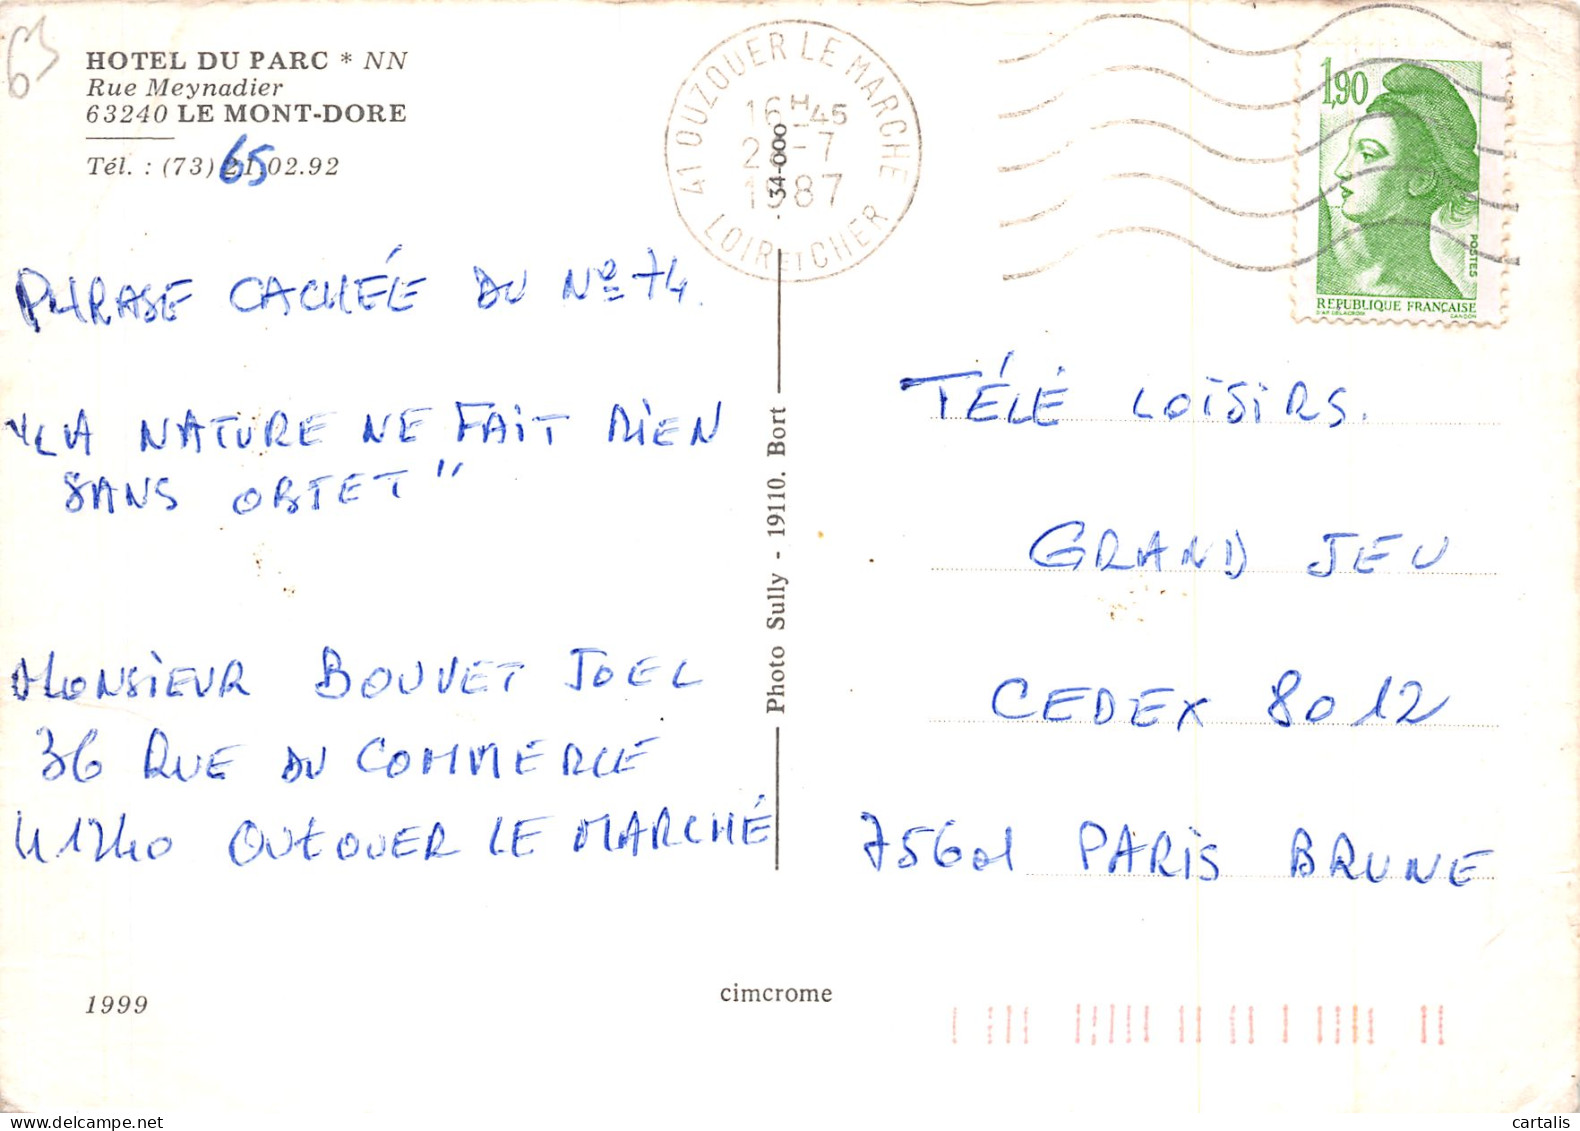 63
HOTEL DU PARC * NN
Rue Meynadier
63240 LE MONT-DORE
Tél. : (73) 21.02.92
65
PHRASE CACHÉE DU Nº 74
"LA NATURE NE FAIT RIEN
SANS OBJET"
MONSIEUR BOUVET JOEL
36 RUE DU COMMERCE
41240 OUZOUER LE MARCHÉ
1999
41 OUZOUER LE MARCHE
16H45
-7
1987
LOIR ET CHER
34-000
Photo Sully - 19110. Bort
cimcrome
1,90
POSTES
REPUBLIQUE FRANÇAISE
D'AP. DELACROIX GANDON
TÉLÉ LOISIRS.
GRAND JEU
CEDEX 8012
75601 PARIS BRUNE
cartalis